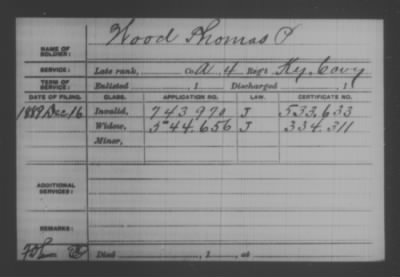 NAME OF SOLDIER: Wood Thomas
SERVICE: Late rank, Co. A, 4 Reg't Ky. Cavy
TERM OF SERVICE: Enlisted , 1 Discharged , 1
DATE OF FILING. CLASS. APPLICATION NO. LAW. CERTIFICATE NO.
1889 Dec 16 Invalid, 743.978 J 533,633
Widow, 544.656 J 334.311
Minor,
ADDITIONAL SERVICES:
REMARKS:
Died , 1 , at